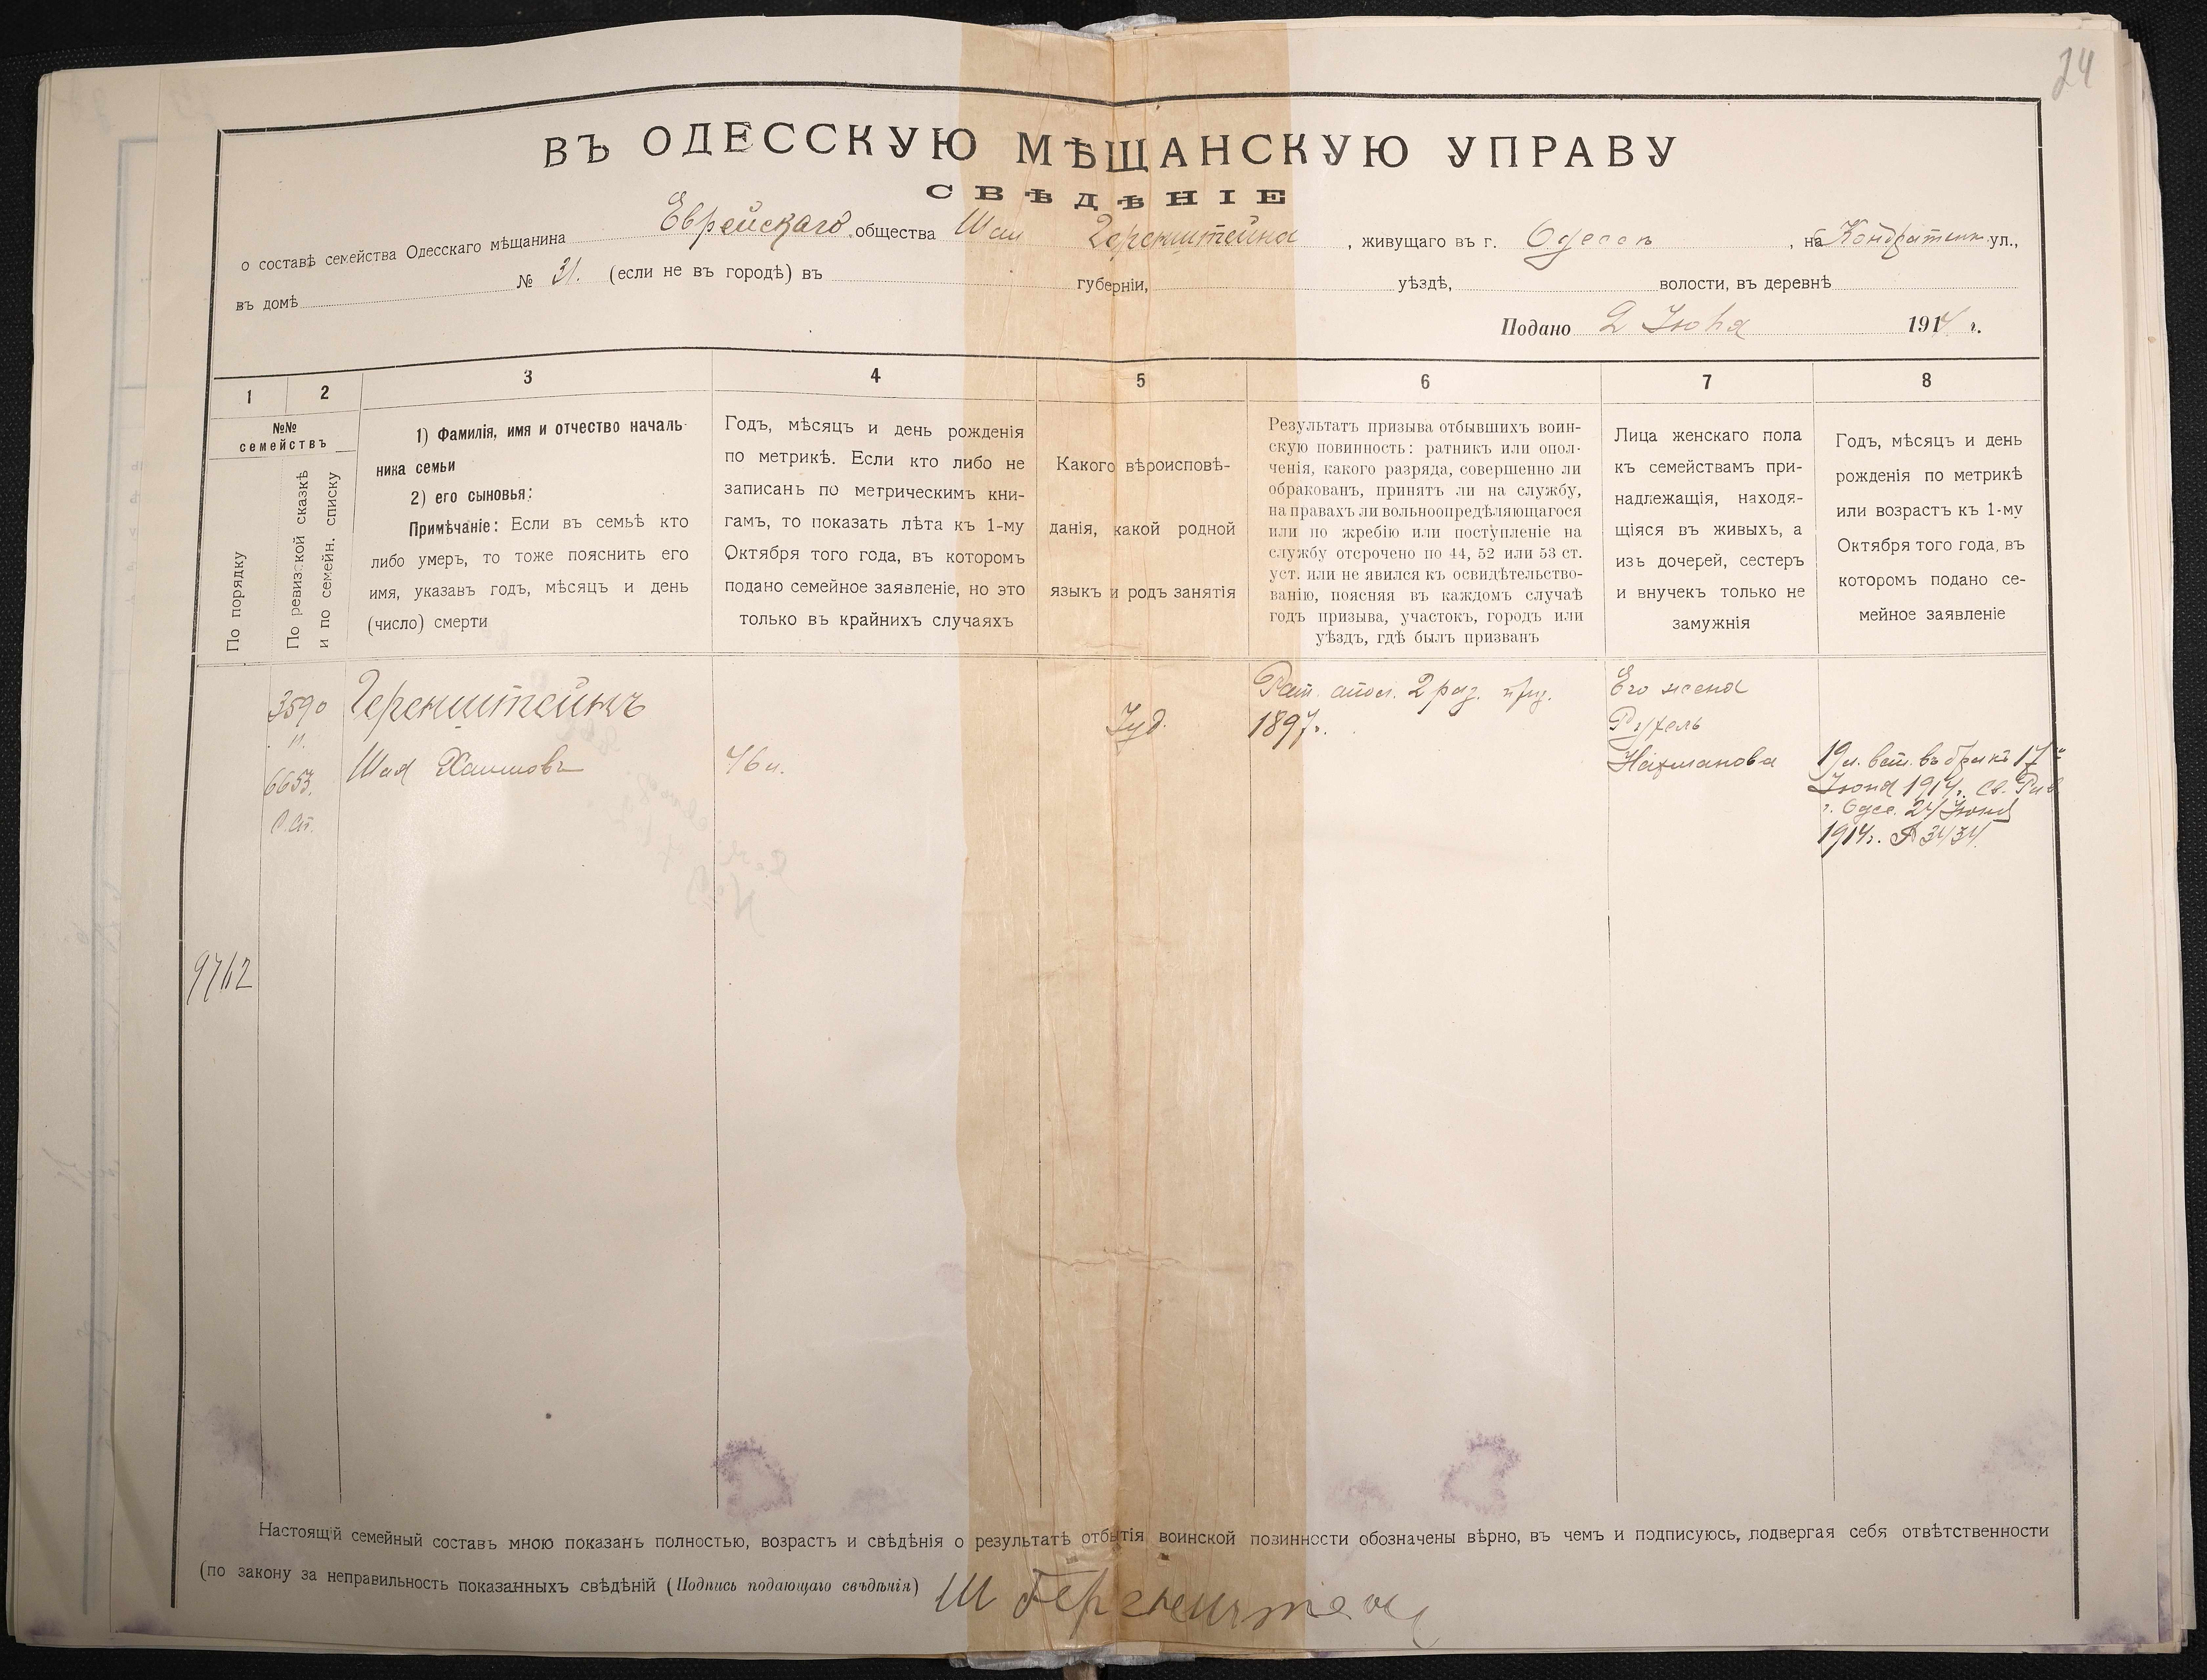 24
ВЪ ОДЕССКУЮ МѢЩАНСКУЮ УПРАВУ
СВѢДѢНІЕ
о составѣ семейства Одесскаго мѣщанина Еврейскаго общества Шаи Геренштейна, живущаго въ г. Одессѣ, на ул.,
въ домѣ № 31. (если не въ городѣ) въ губерніи, уѣздѣ, волости, въ деревнѣ
Подано 2 1914 г.
1 2 3 4 5 6 7 8
№№
семействъ
По порядку
По ревизской сказкѣ
и по семейн. списку
1) Фамилія, имя и отчество началь-
ника семьи
2) его сыновья:
Примѣчаніе: Если въ семьѣ кто
либо умеръ, то тоже пояснить его
имя, указавъ годъ, мѣсяцъ и день
(число) смерти
Годъ, мѣсяцъ и день рожденія
по метрикѣ. Если кто либо не
записанъ по метрическимъ кни-
гамъ, то показать лѣта къ 1-му
Октября того года, въ которомъ
подано семейное заявленіе, но это
только въ крайнихъ случаяхъ
Какого вѣроисповѣ-
данія, какой родной
языкъ и родъ занятія
Результатъ призыва отбывшихъ воин-
скую повинность: ратникъ или опол-
ченія, какого разряда, совершенно ли
обракованъ, принятъ ли на службу,
на правахъ ли вольноопредѣляющагося
или по жребію или поступленіе на
службу отсрочено по 44, 52 или 53 ст.
уст. или не явился къ освидѣтельство-
ванію, поясняя въ каждомъ случаѣ
годъ призыва, участокъ, городъ или
уѣздъ, гдѣ былъ призванъ
Лица женскаго пола
къ семействамъ при-
надлежащія, находя-
щіяся въ живыхъ, а
изъ дочерей, сестеръ
и внучекъ только не
замужнія
Годъ, мѣсяцъ и день
рожденія по метрикѣ
или возрастъ къ 1-му
Октября того года, въ
которомъ подано се-
мейное заявленіе
3590
Геренштейнъ
Рат. опол. 2 раз. приз.
1897г.
Іуд.
Его жена
Рухель
Нахманова
6653.
С.сп.
Шая Хаимовъ
46 л.
19 л. вст. въ бракъ 17го
Іюня 1914г. св. Рав
г. Одес. 24 Іюня
1914г. № 3434.
9762
Настоящій семейный составъ мною показанъ полностью, возрастъ и свѣдѣнія о результатѣ отбытія воинской повинности обозначены вѣрно, въ чемъ и подписуюсь, подвергая себя отвѣтственности
(по закону за неправильность показанныхъ свѣдѣній (Подпись подающаго свѣдѣнія) Ш